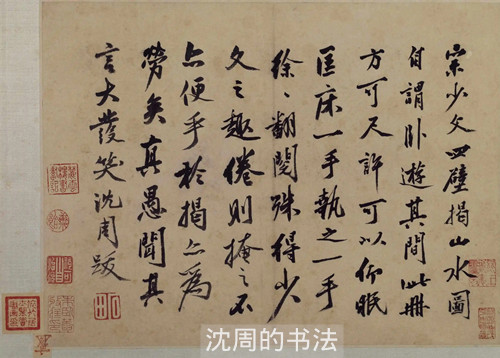 宗少文四壁揭山水圖
自謂卧遊其間此冊
方可尺許可以仰眠
匡床一手執之一手
徐〻翻閱殊得少
文之趣倦則掩之不
亦便乎於揭亦為
勞矣真愚聞其
言大發笑沈周跋
沈周的书法